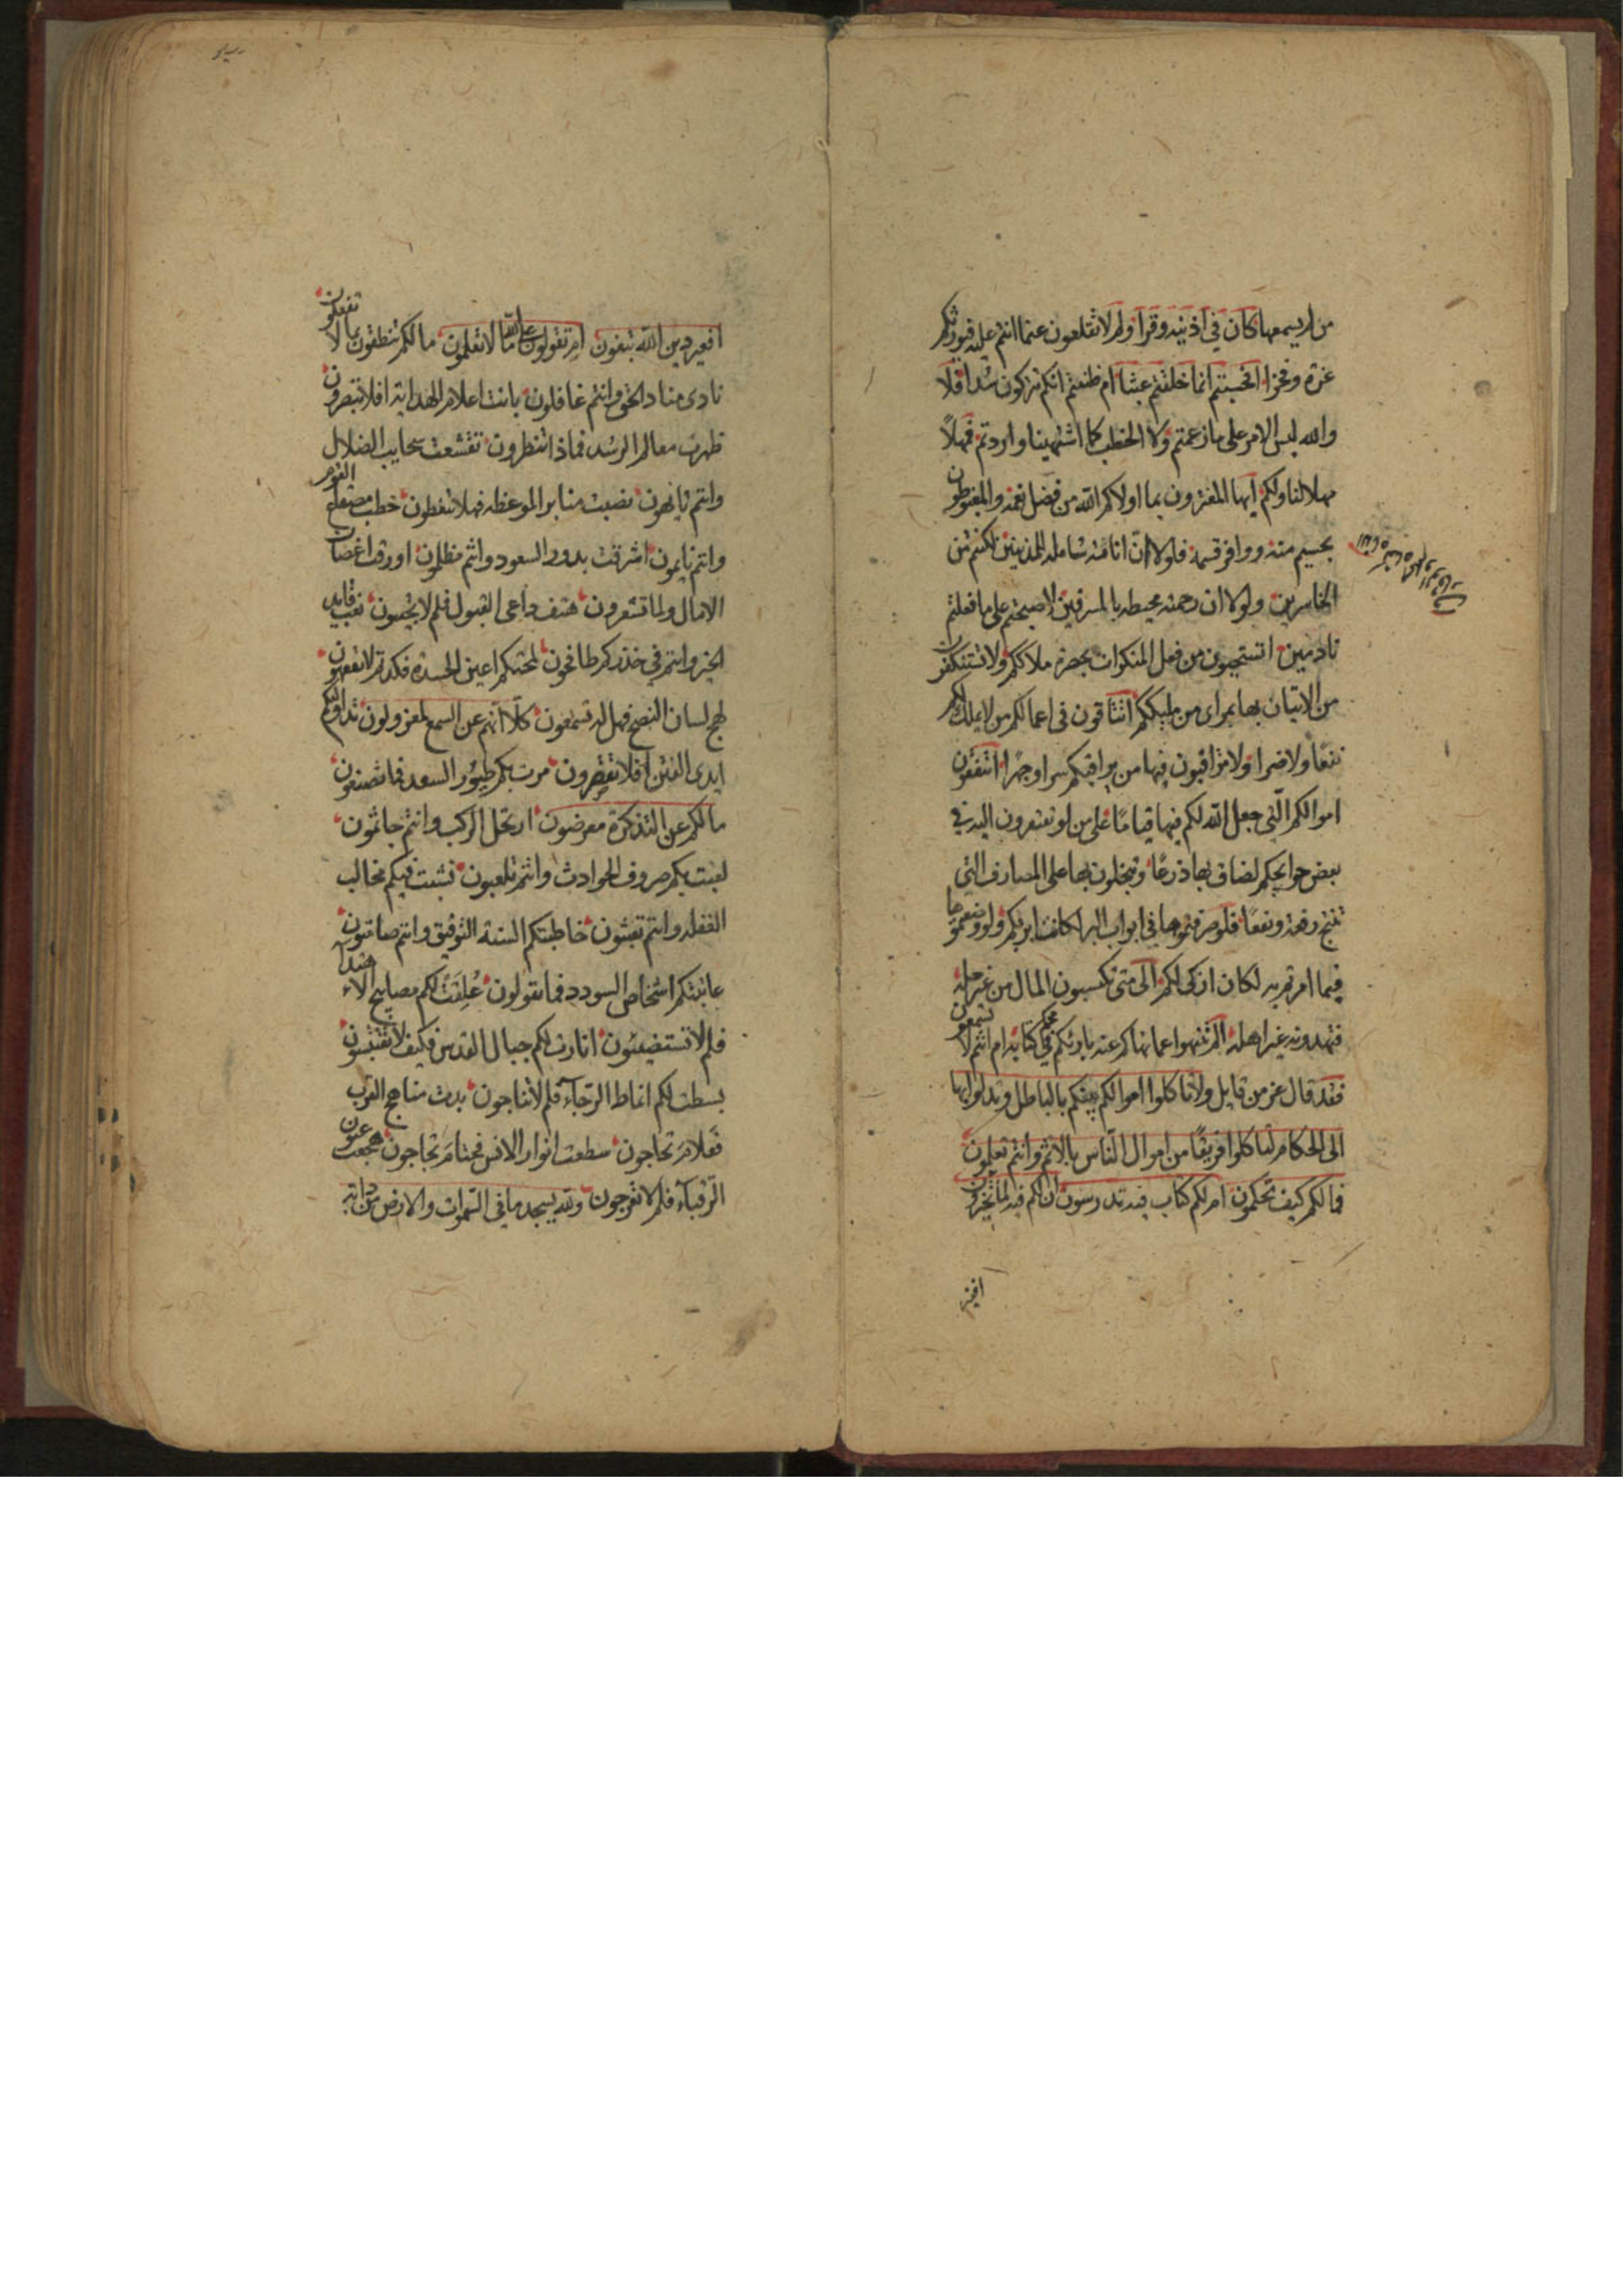 من لم يسمعها كان في اذنيه وقرا ولم لا تقلعون عما انتم عليه فيورثكم
عزة وفخرا افحسبتم انما خلقتم عبثا ام ظننتم انكم تتركون سدا فلا
والله ليس الامر على ما زعمتم ولا الخطب كما اشتهينا واردتم فمهلاً
مهلا لنا ولكم ايها المغترون بما اولاكم الله من فضل نعمه والمغبوطون
بجسيم مننه ووافر قسمه فلولا انّ اناته شاملة للمذنبين لكنتم من
الخاسرين ولولا ان رحمته محيطه بالمسرفين لاصبحتم على ما فعلتم
نادمين اتستحيون من فعل المنكرات بحضرة ملاككم ولا تستنكفون
من الاتيان بها بمراى من مليككم اتنتاقون في اعمالكم من لا يملك لكم
نفعًا ولا ضرا ولا تراقبون فيها من يراقبكم سرا وجهرًا اتنفقون
اموالكم الّتي جعل الله لكم فيها قيامًا على من لو تفتقرون اليه في
بعض حوايجكم لضاق بها ذرعًا وتبخلون بها على المصارف التي
تنتج رفعة ونفعًا فلو صرفتموها في ابواب البر لكانت ابر بكم ولو وضعتموها
فيما امرتم به لكان ازكى لكم الى متى تكسبون المال من غير حله
فتهدونه غير اهله الم تنتهوا عما نهاكم عنه بارئكم في محكم كتابه ام انتم لا تسمعون
فقد قال عز من قايل ولا تاكلوا اموالكم بينكم بالباطل وتدلوا بها
الى الحكام لتاكلوا فريقًا من اموال النّاس بالاثم وانتم تعلمون
فما لكم كيف تحكمون ام لكم كتاب فيه تدرسون ان لكم فيه لما تخيرون
افغير
افغير دين الله تبغون ام تقولون على الله ما لا تعلمون ما لكم تنطقون بما لا تفعلون
نادى مناد الحق وانتم غافلون بانت اعلام الهداية افلا تبصرون
ظهرت معالم الرشد فماذا تنظرون تقشعت سحايب الضلال
وانتم تايهون نصبت منابر الموعظه فهلا تتعظون خطب مصقع القوم
وانتم نايمون اشرقت بدور السعود وانتم مظلمون اورقت اغصان
الامال ولما تشعرون هتف داعي القبول فلم لا تجيبون نعب قايد
الخير وانتم في خذركم طافحون لمحتكم اعين الحسدة فكدتم لا تفقهون
لهج لسان النصح فهل له تسمعون كلّا انهم عن السمع لمعزولون تداولتكم
ايدى الفتن افلا تفترون مرت بكم طيور السعد فما تصنعون
ما لكم عن التذكرة معرضون ارتحل الركب وانتم جاثمون
لعبت بكم صروف الحوادث وانتم تلعبون نشبت فيكم مخالب
الغفله وانتم تعبثون خاطبتكم السنة التوفيق وانتم صامتون
عاتبتكم اشخاص السودد فما تقولون عُلِقَت لكم مصابيح الاء
فلم لا تستضيئون انارت لكم جبال القدس فكيف لا تقتبسون
بسطت لكم انماط الرّجاء فلم لا تناجون بدت مناهج القرب
فعلام تحاجون سطعت انوار الانس فحتام تحاجون هجعت عيون
الرّقباء فلم لا تعرجون ولله يسجد ما في السّموات والارض من دابة